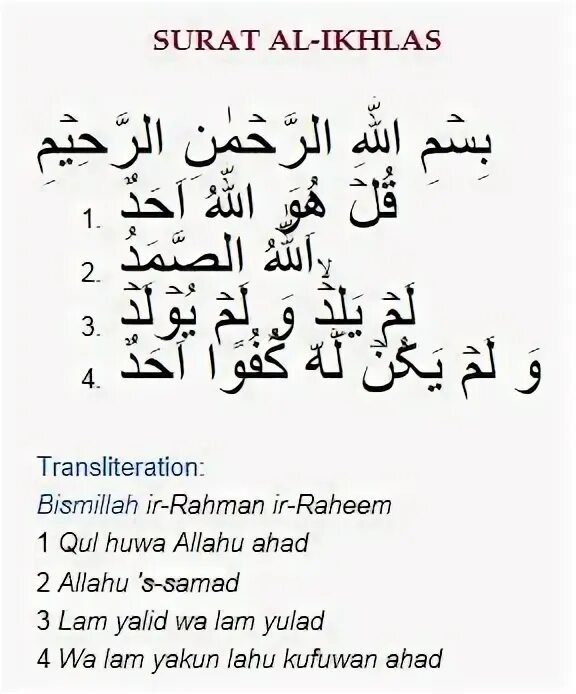 SURAT AL-IKHLAS
بِسْمِ اللّٰهِ الرَّحْمٰنِ الرَّحِيْمِ
1. قُلْ هُوَ اللّٰهُ اَحَدٌ
2. اَللّٰهُ الصَّمَدُ
3. لَمْ يَلِدْ ۙ وَ لَمْ يُوْلَدْ
4. وَ لَمْ يَكُنْ لَّهٗ كُفُوًا اَحَدٌ
Transliteration:
Bismillah ir-Rahman ir-Raheem
1 Qul huwa Allahu ahad
2 Allahu 's-samad
3 Lam yalid wa lam yulad
4 Wa lam yakun lahu kufuwan ahad